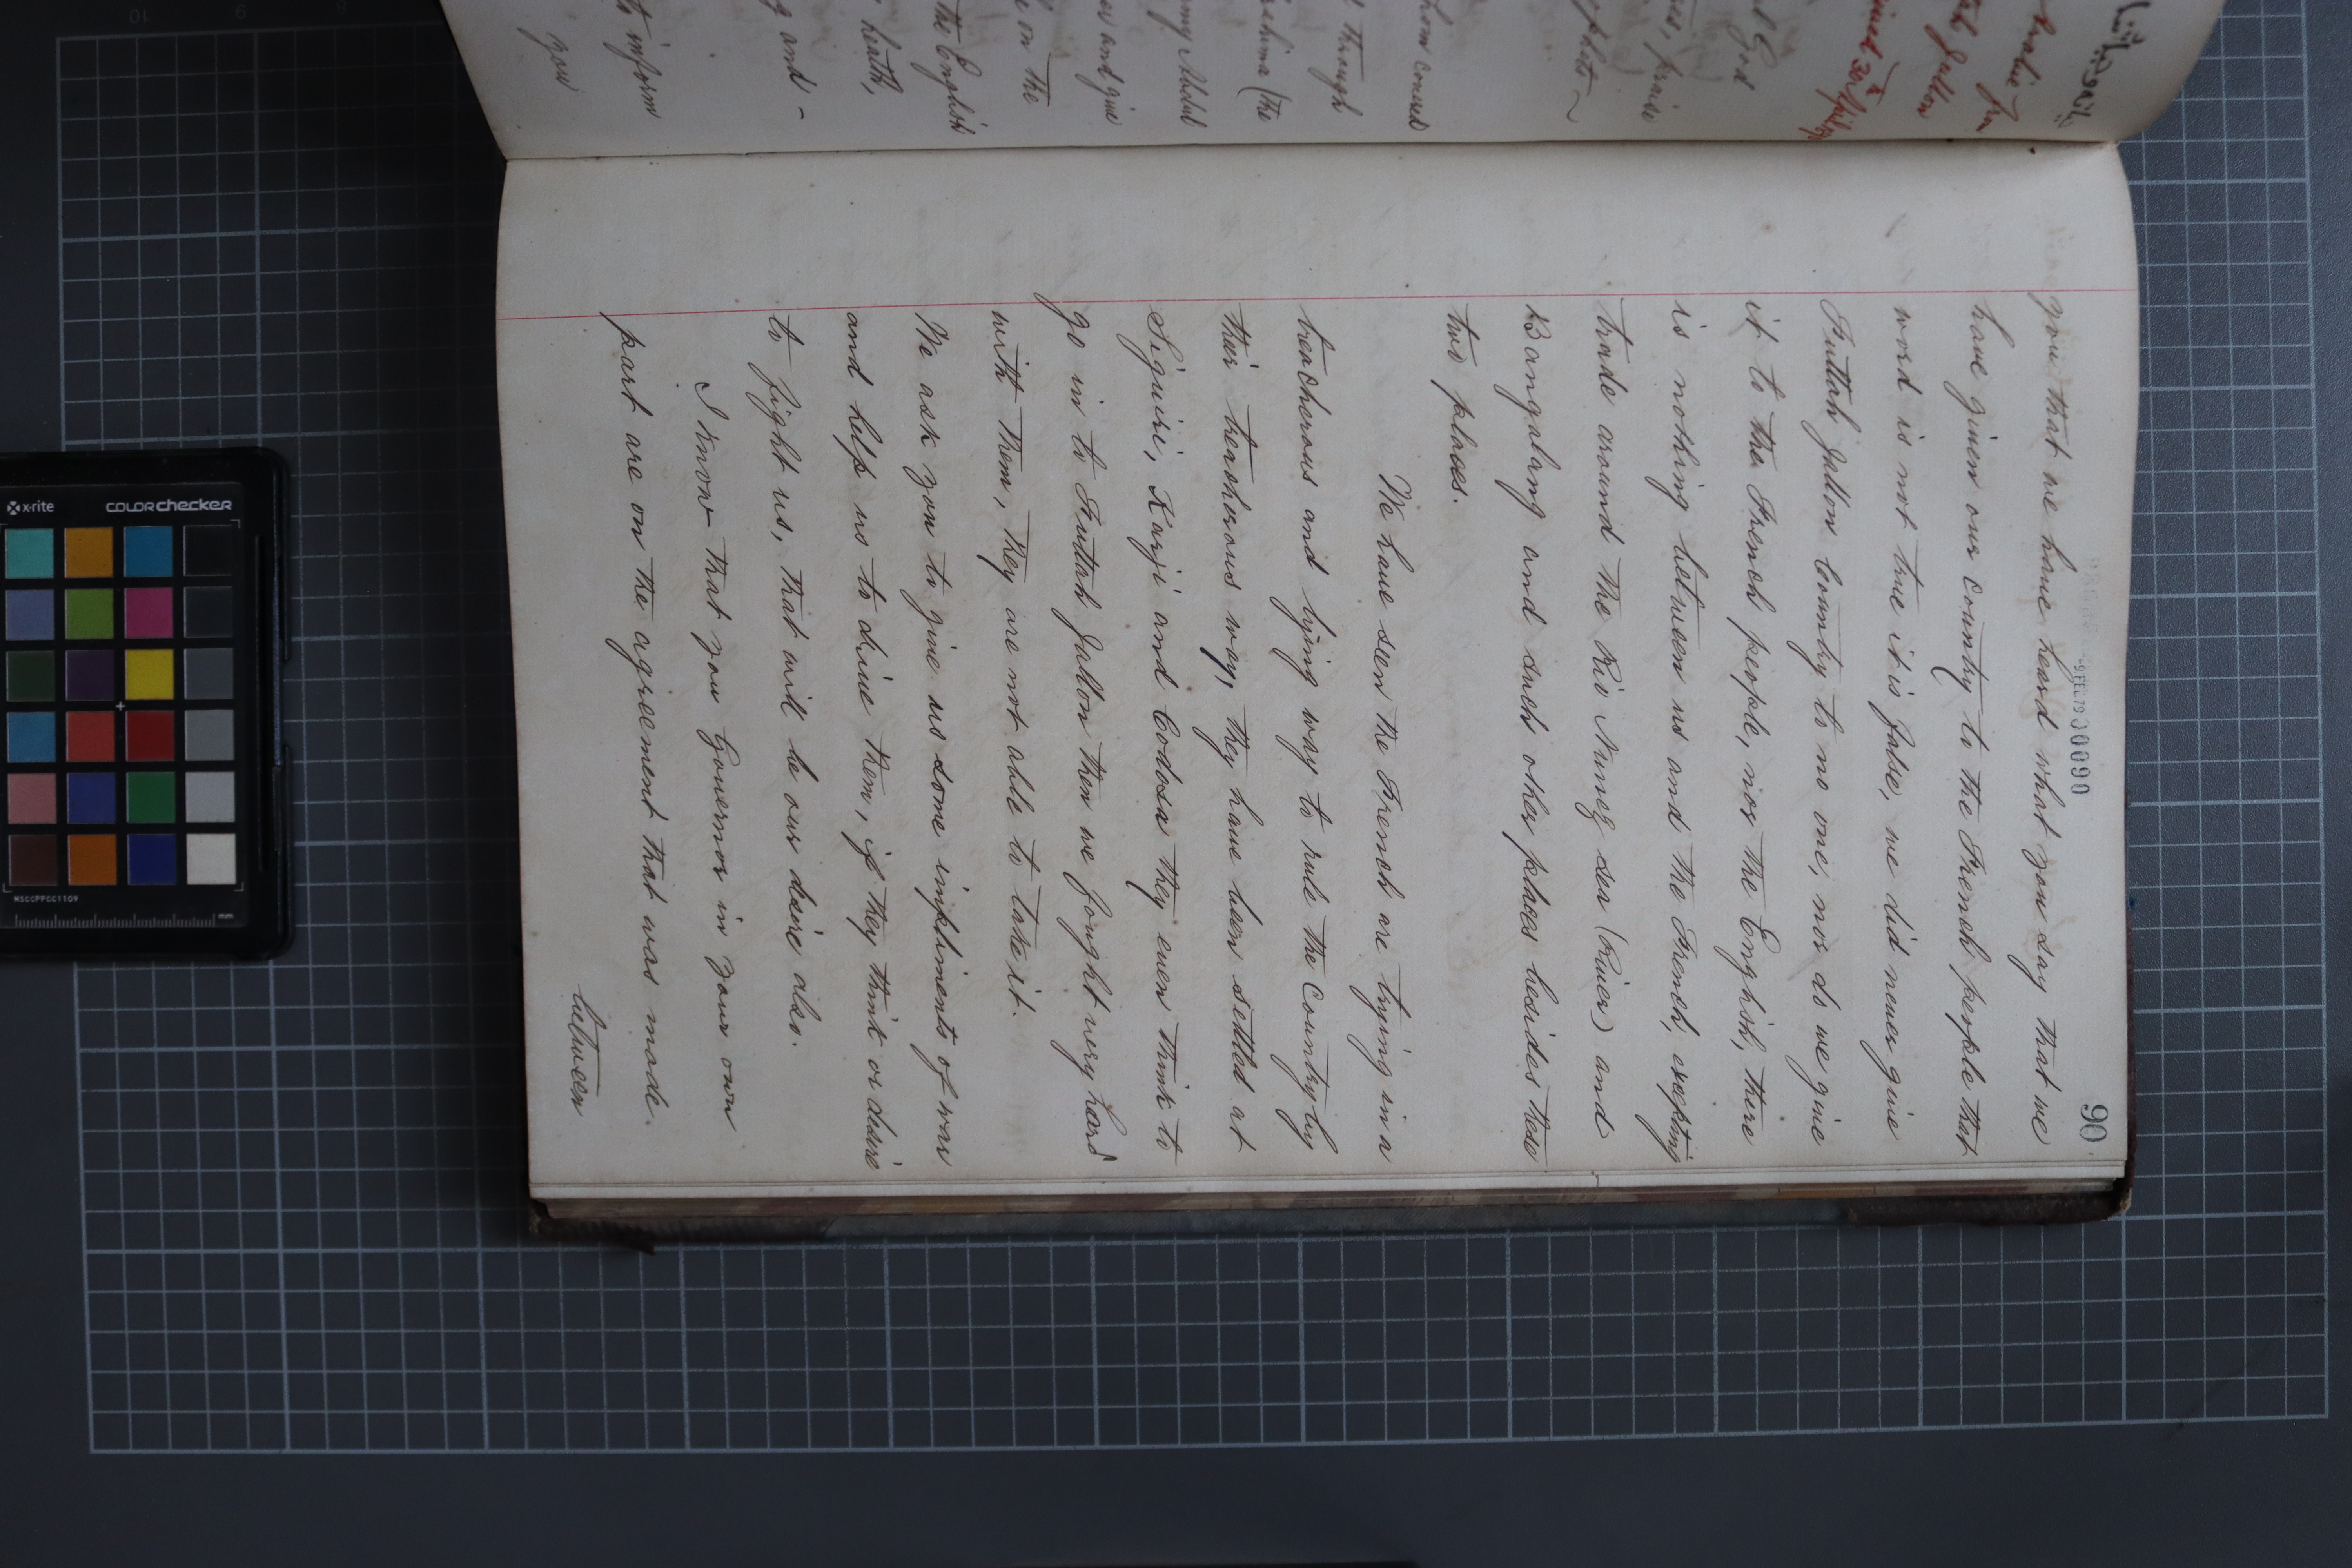 90
you that we have heard what you say that we
have given our country to the French people that
word is not true it is false, we did never give
Futtah Jallon Country to no one, nor do we give
it to the French people, nor the English, there
is nothing between us and the French, excepting
trade around the Rio Nunez sea (River) and
Bangalang and such other places besides these
two places.
We have seen the French are trying in a
treacherous and lying way to rule the Country by
their treacherous way, they have been settled at
Siguiri, Karji and Codosa they even think to
go in to Futtah Jallon then we fought very hard
with them, they are not able to take it.
We ask you to give us some impliments of war
and help us to drive them, if they think or desire
to fight us, that will be our desire also.
I know that you Governor in your own
part are on the agreement that was made
between
Futtah Jallon
God
praise
whom comes
through
(the
my Abdul
and give
on the
the English
health,
and -
to inform
you
x-rite
colorchecker
MSCCPPCC1109
mm